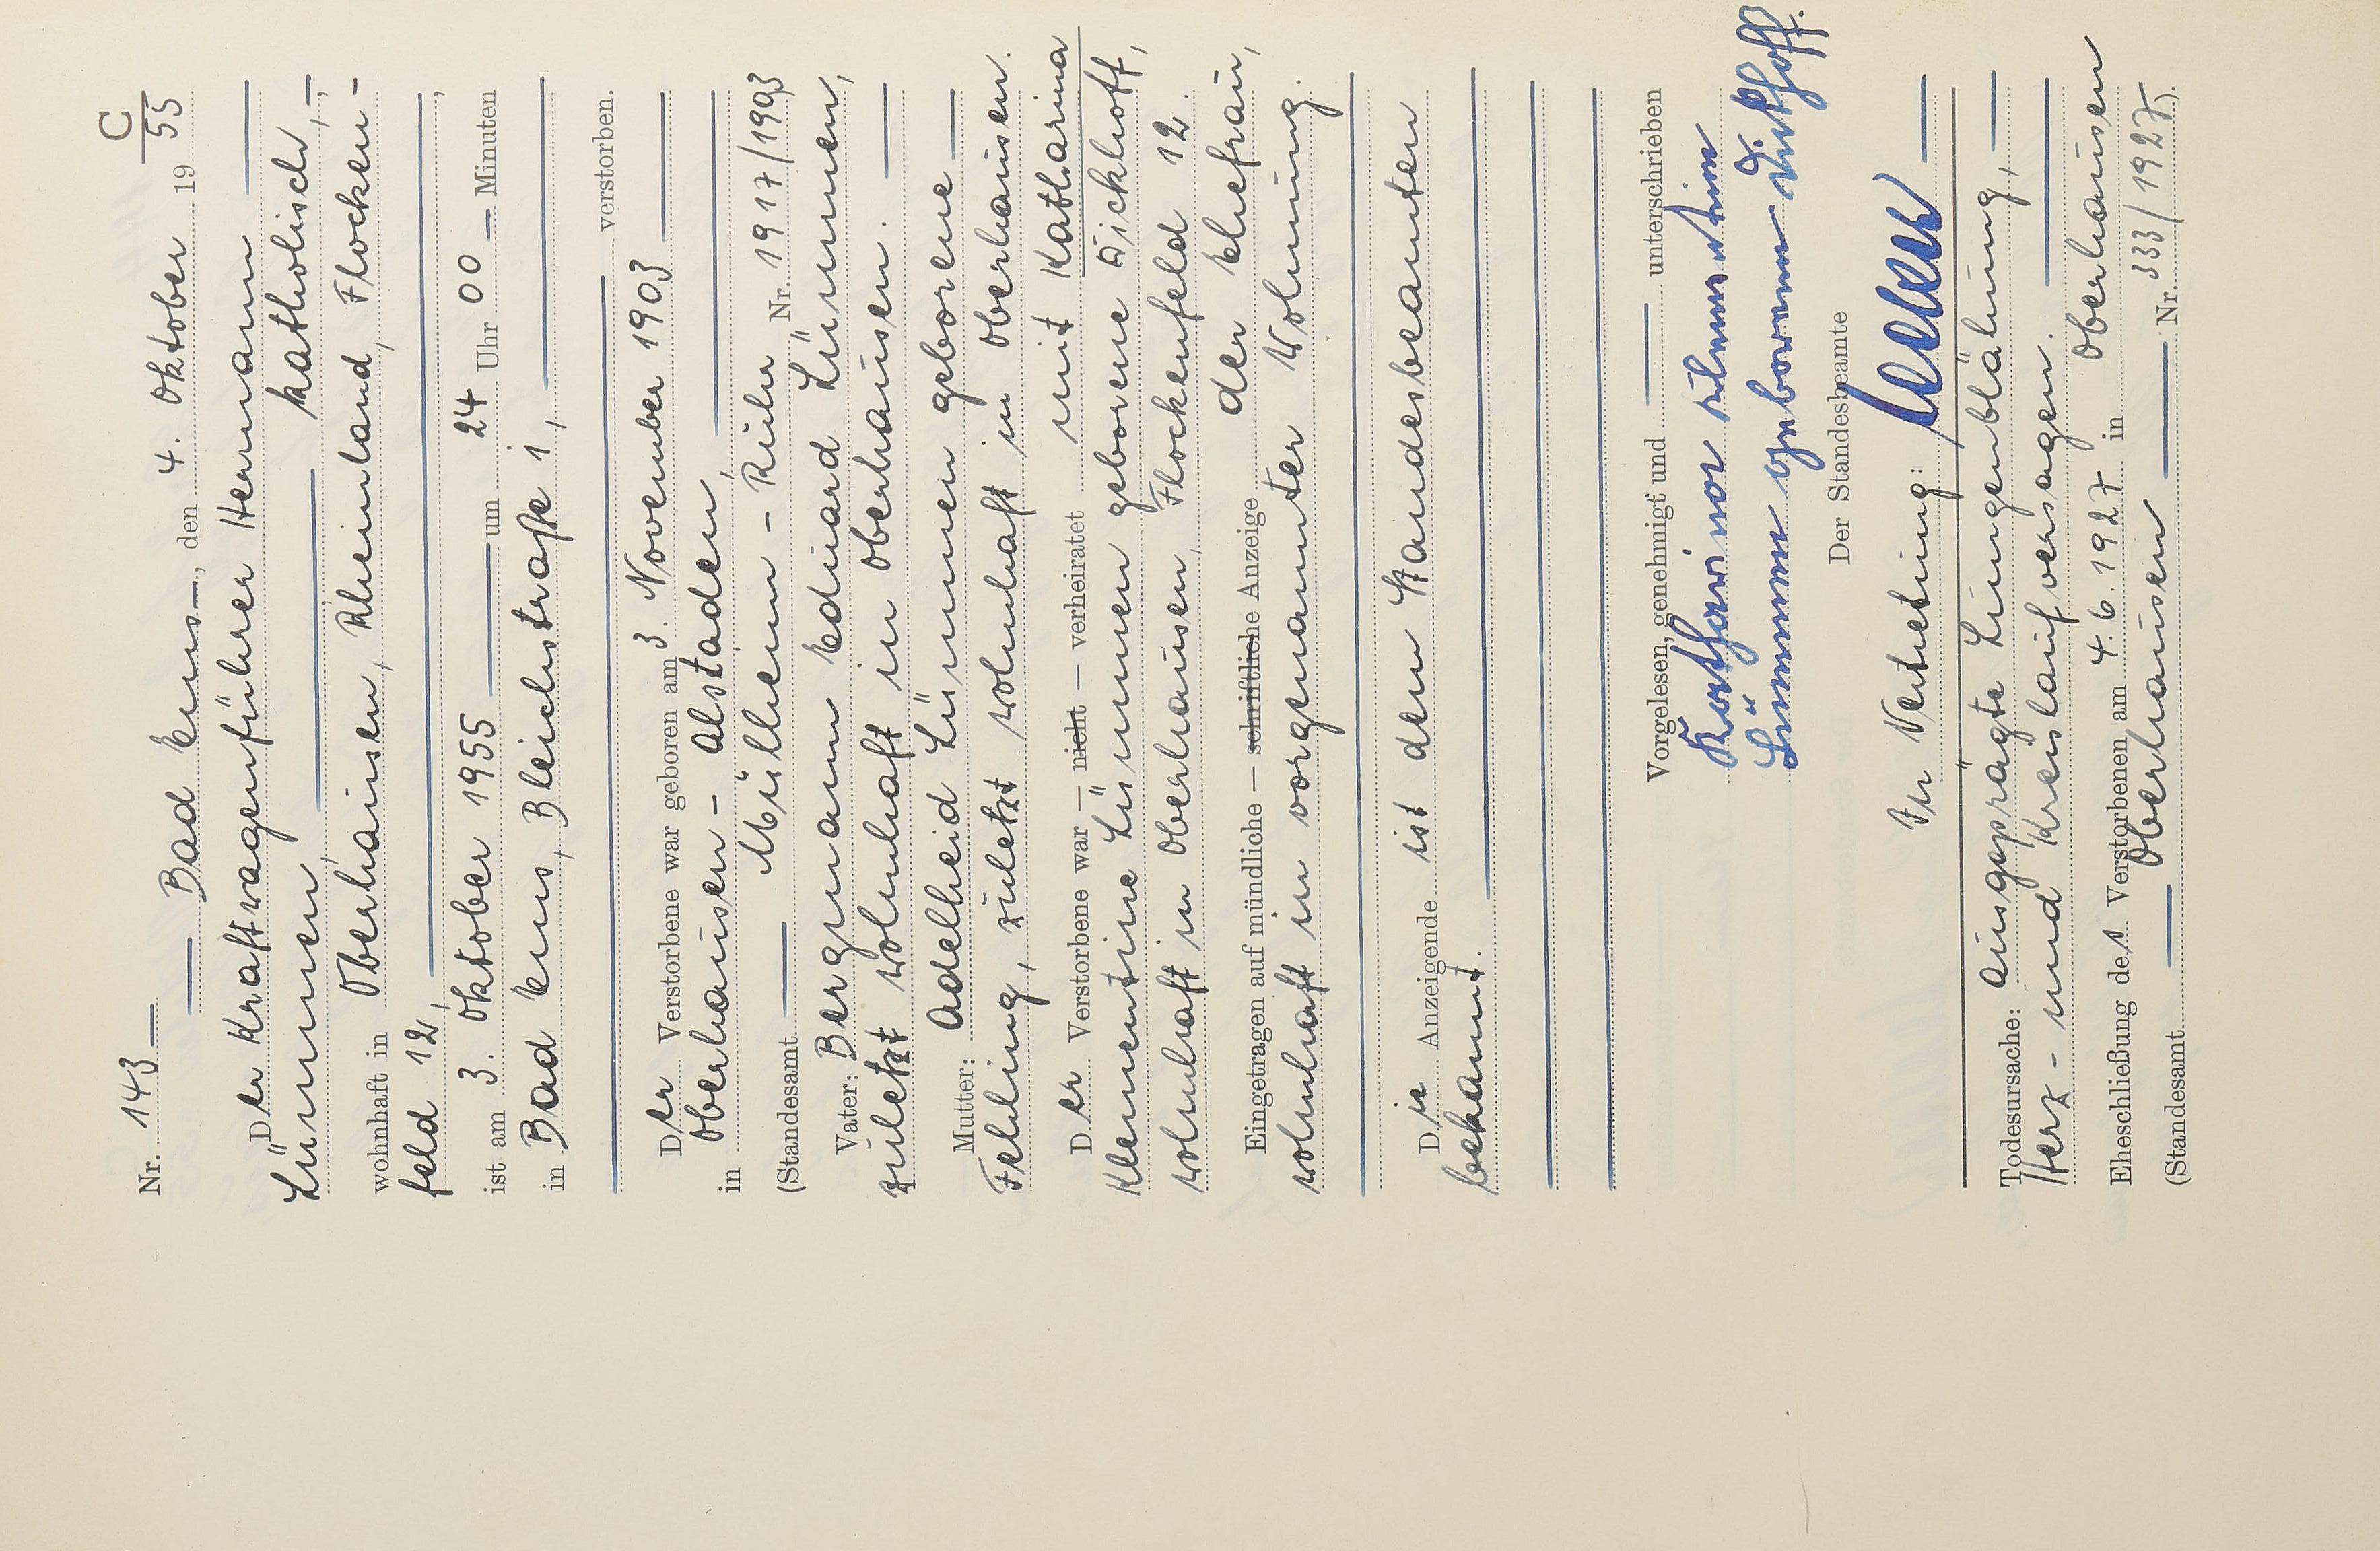 C
Nr. 143 —
— Bad Ems —, den 4. Oktober 1955
Der Kraftwagenführer Hermann —
Lümmen, — katholisch, —,
wohnhaft in Oberhausen, Rheinland, Flocken-
feld 12, —,
ist am 3. Oktober 1955 — um 24 Uhr 00 — Minuten
in Bad Ems, Bleichstraße 1, —
— verstorben.
Der Verstorbene war geboren am 3. November 1903 —
in Oberhausen - Alstaden, —
(Standesamt — Mülheim - Ruhr Nr. 1917/1903)
Vater: Bergmann Eduard Lümmen,
zuletzt wohnhaft in Oberhausen. —
Mutter: Adelheid Lümmen geborene —
Fehling, zuletzt wohnhaft in Oberhausen.
Der Verstorbene war — nicht — verheiratet mit Katharina
Klementine Lümmen geborene Dickhoff,
wohnhaft in Oberhausen, Flockenfeld 12.
Eingetragen auf mündliche — schriftliche Anzeige der Ehefrau,
wohnhaft in vorgenannter Wohnung.
Die Anzeigende ist dem Standesbeamten
bekannt.
Vorgelesen, genehmigt und — unterschrieben
Lümmen geborenen Dickhoff.
Der Standesbeamte
In Vertretung:
Todesursache: ausgeprägte Lungenblähung, —
Herz- und Kreislaufversagen. —
Eheschließung des Verstorbenen am 4.6.1927 in Oberhausen
(Standesamt — Oberhausen — Nr. 333/1927).